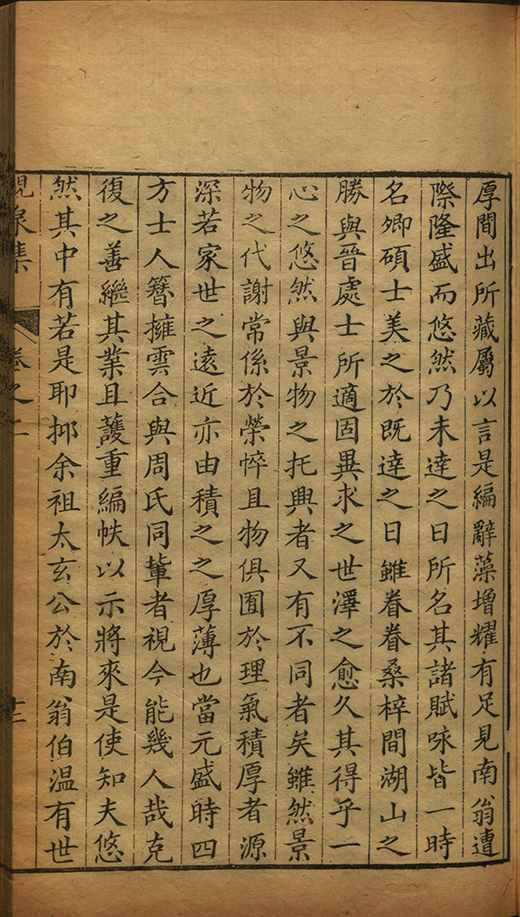 厚間出所藏屬以言是編辭藻增耀有足見南翁遭
際隆盛而悠然乃未達之日所名其諸賦咏皆一時
名卿碩士美之於既達之日雖眷眷桑梓間湖山之
勝與晉處士所適固異求之世澤之愈久其得乎一
心之悠然與景物之托興者又有不同者矣雖然景
物之代謝常係於榮悴且物俱囿於理氣積厚者源
深若家世之遠近亦由積之之厚薄也當元盛時四
方士人簪擁雲合與周氏同輩者視今能幾人哉克
復之善繼其業且護重編帙以示將來是使知夫悠
然其中有若是耶抑余祖太玄公於南翁伯温有世
泉集
卷之二
十三